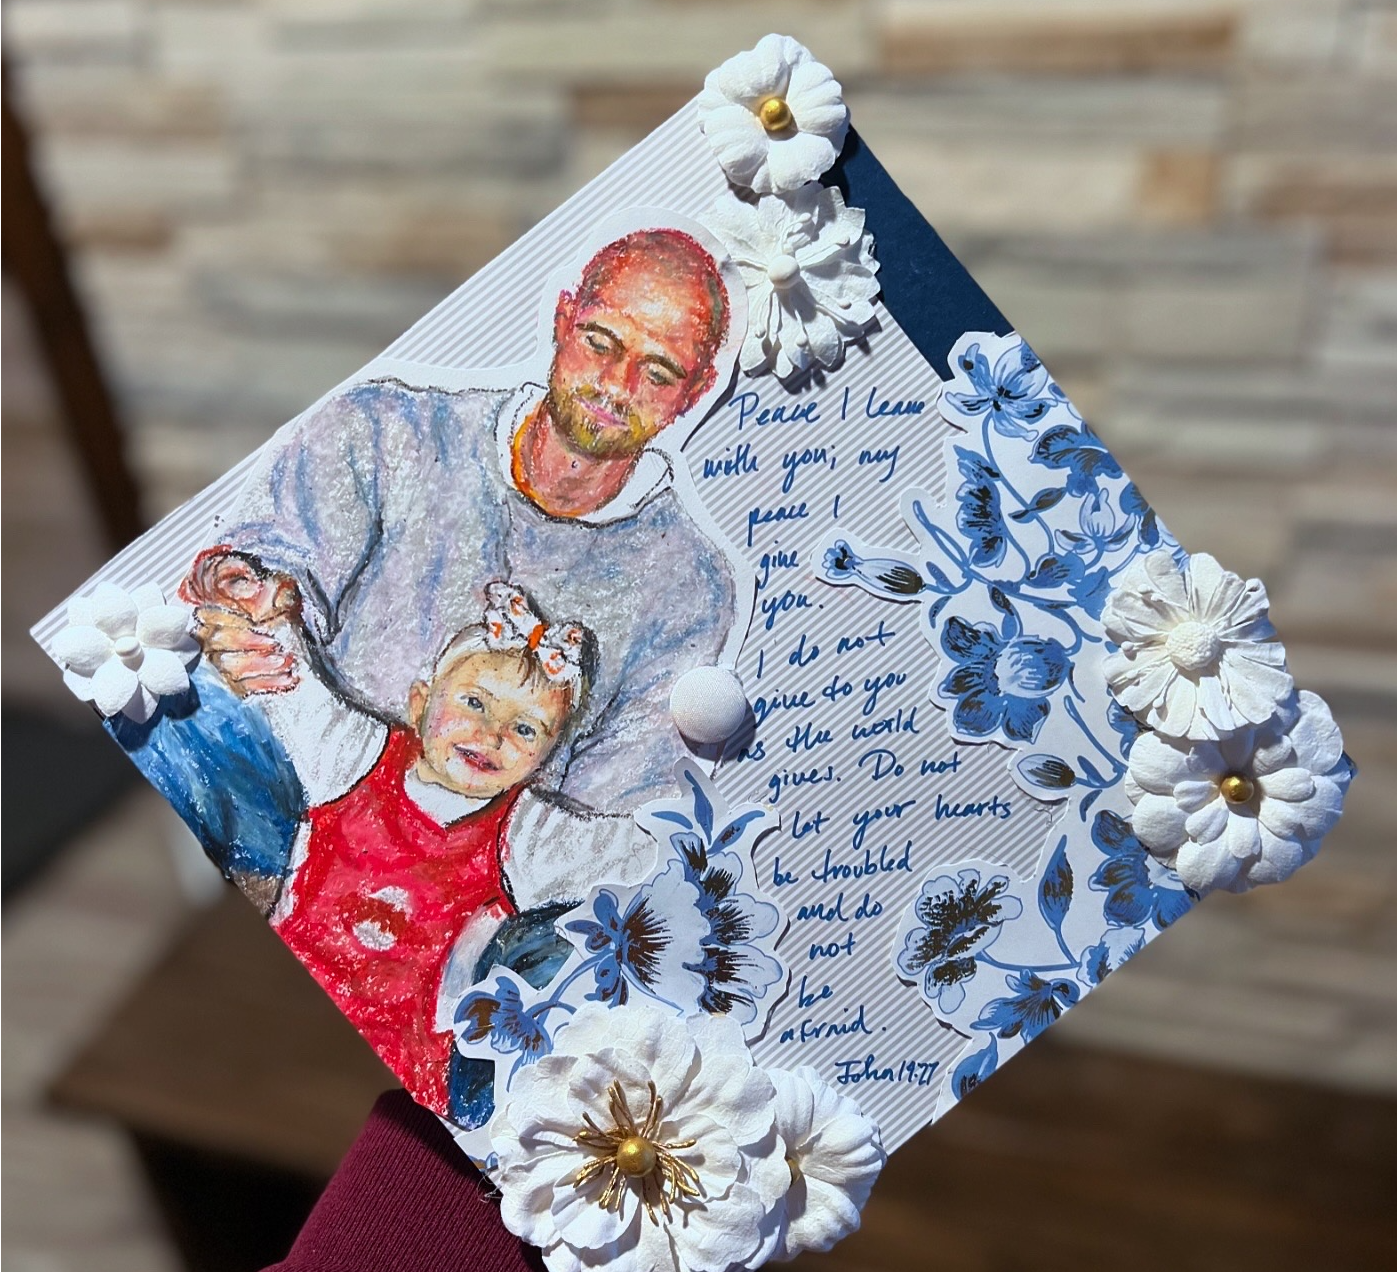 Peace I leave
with you; my
peace I
give
you.
I do not
give to you
as the world
gives. Do not
let your hearts
be troubled
and do
not
be
afraid.
John 14:27